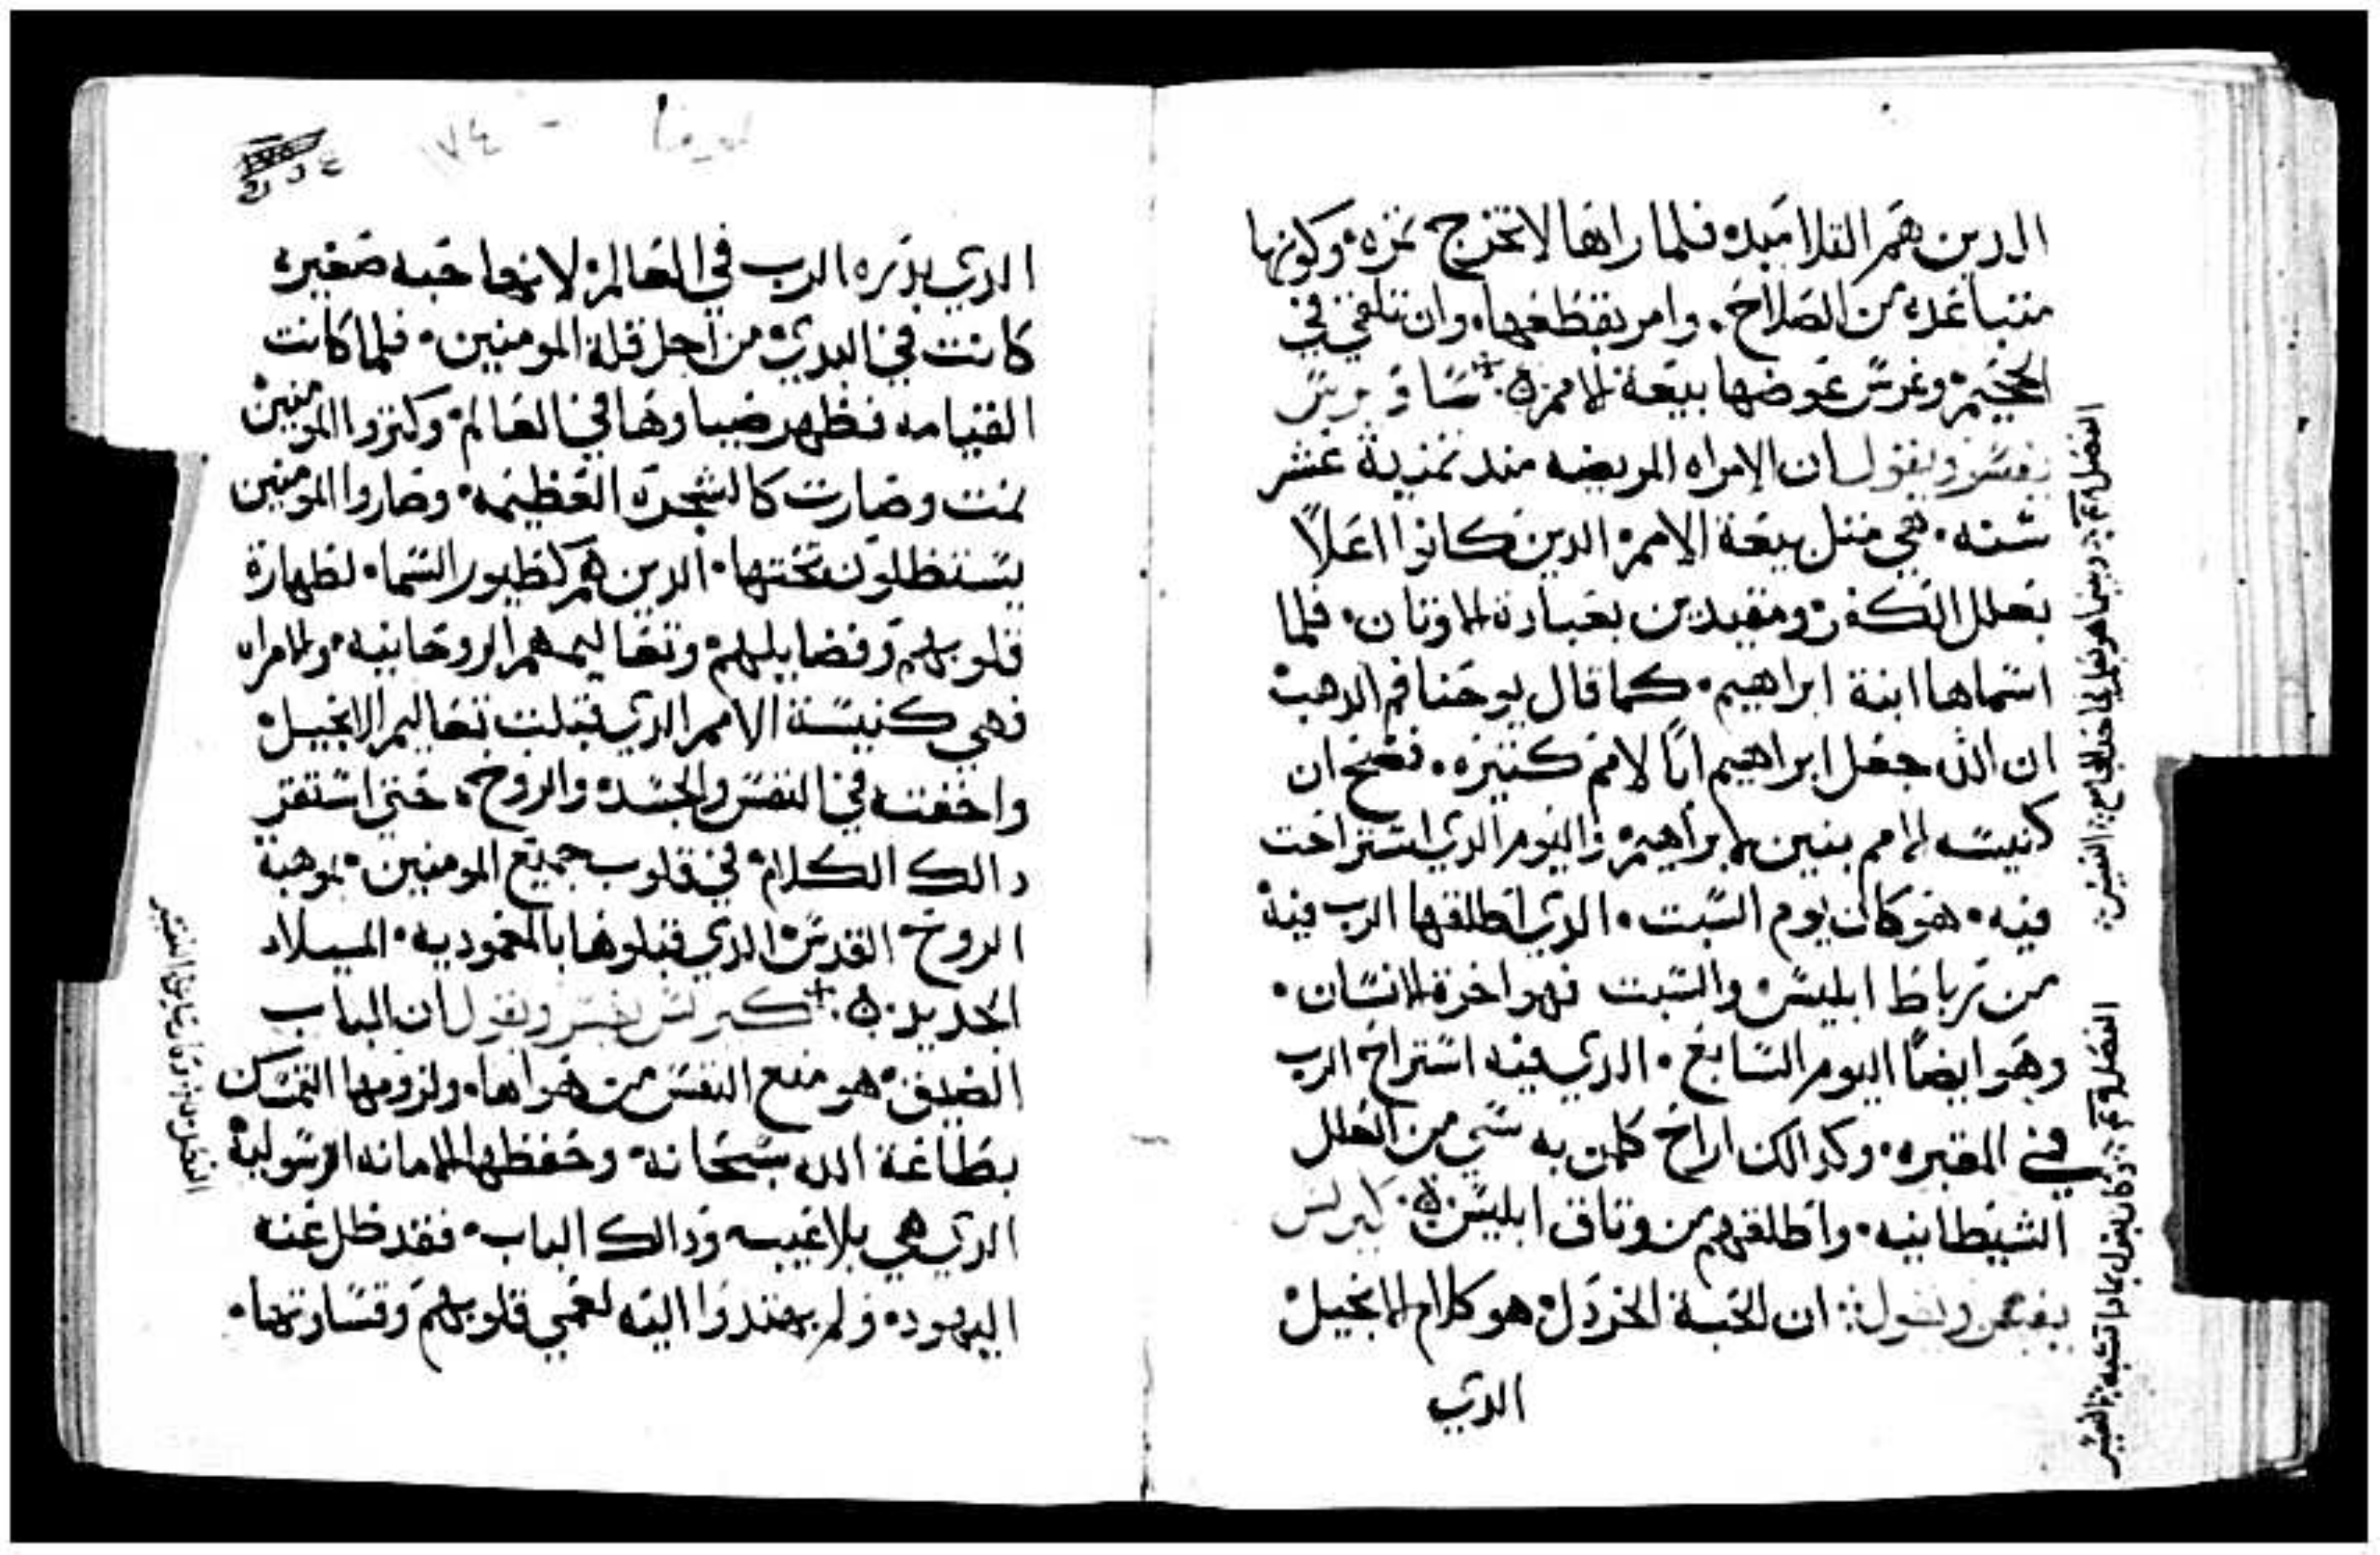 الدين هم التلاميد فلما راها لا تخرج تمره وكونها
متباعده من الصلاح. وامر بقطعها. وان تلقي في
الجحيم وغرس عوضها بيعة الامم ساويرس
يفسر ويقول ان الامراه المريضه مند تمنية عشر
سنه. هي متل بيعة الامم الدين كانوا اعلا
بعلل الكفر ومقيدين بعبادة الاوتان. فلما
اسماها ابنة ابراهيم. كما قال يوحنا فم الدهب
ان الله جعل ابراهيم ابا لامم كتيره. فصح ان
كنيسه الامم بنين لابراهيم واليوم الدي استراحت
فيه. هو كان يوم السبت. الدي اطلقها الرب فيه
من رباط ابليس والسبت فهو اخرة الانسان.
وهو ايضا اليوم السابع. الدي فيه استراح الرب
في المقبره. وكدالك اراح كلمن به شي من العلل
الشيطانيه. واطلقهم من وتاق ابليس كيرلس
يفسر ويقول ان الحبة الخردل هو كلام الانجيل
الدي
الفصل وبينما هو يعلم في احد المجامع التفسير
الفصل وكان يقول بمادا تشبه التفسير
١٧٤
الدي بدره الرب في العالم لانها حبه صغيره
كانت في البدي من اجل قلة المومنين. فلما كانت
القيامه فظهر ضياوها في العالم وكتروا المومنين
نمت وصارت كالشجرة العظيمه. وصاروا المومنين
يستظلون تحتها. الدين هم كطيور السما. لطهارة
قلوبهم وفضايلهم وتعاليمهم الروحانيه. والامراه
فهي كنيسة الامم الدي قبلت تعاليم الانجيل
واخفته في النفس والجسد والروح. حتي استقر
دالك الكلام في قلوب جميع المومنين. بموهبة
الروح القدس الدي قبلوها بالمعموديه. الميلاد
الجديد كيرلس يفسر ويقول ان الباب
الضيق هو منع النفس من هواها. ولزومها التمسك
بطاعة الله سبحانه. وحفظها الامانه الرسولية
الدي هي بلا عيب ودالك الباب. فقد ظل عنه
اليهود. ولم يهتدوا اليه لعمي قلوبهم وقساوتها.